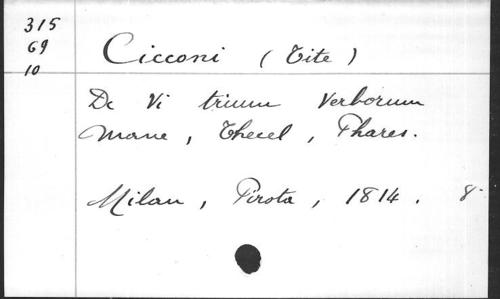 315
69
10
Cicconi (Tite)
De Vi trium Verborum
Mane, Thecel, Phares.
Milan, Pirota, 1814. 8-